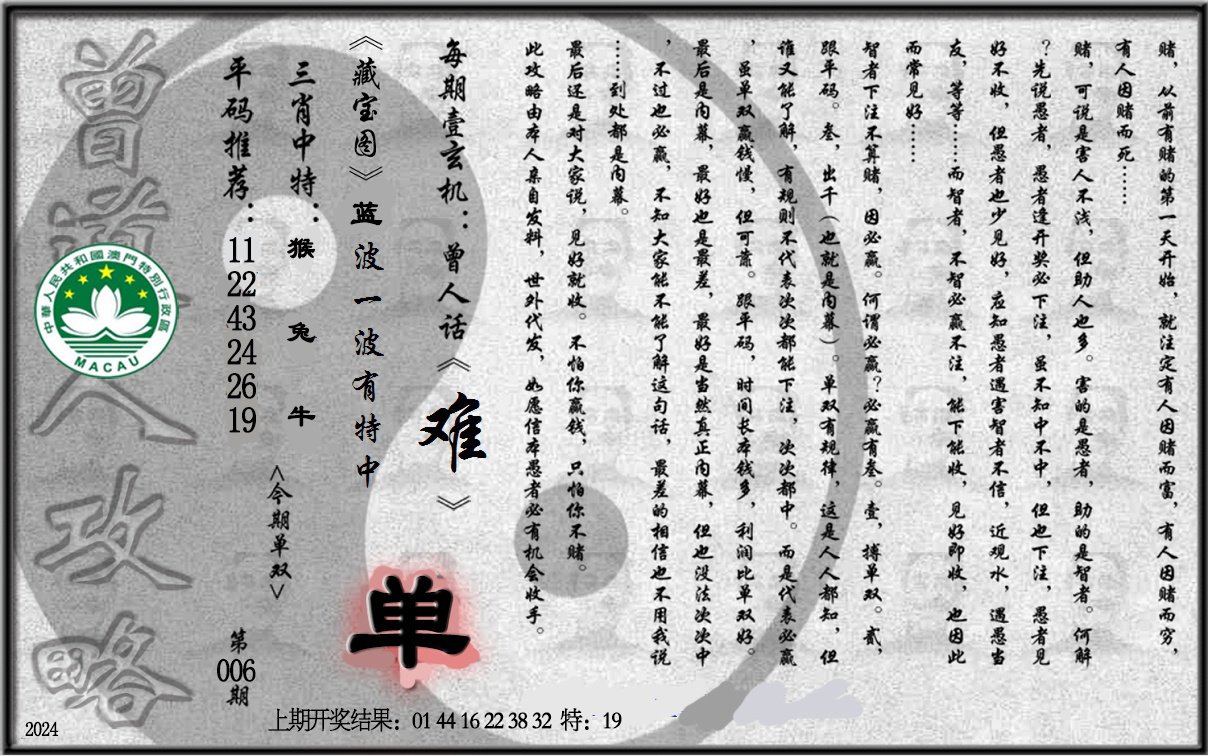 赌，从前有赌的第一天开始，就注定有人因赌而富，有人因赌而穷，
有人因赌而死……
赌，可说是害人不浅，但助人也多。害的是愚者，助的是智者。何解
？先说愚者，愚者逢开奖必下注，虽不知中不中，但也下注，愚者见
好不收，但愚者也少见好，应知愚者遇害智者不信，近观水，遇愚当
友，等等……而智者，不智必赢不注，能下能收，见好即收，也因此
而常见好……
智者下注不算赌，因必赢。何谓必赢？必赢有叁。壹，搏单双。贰，
跟平码。叁，出千（也就是内幕）。单双有规律，这是人人都知，但
谁又能了解，有规则不代表次次都能下注，次次都中。而是代表必赢
，虽单双赢钱慢，但可靠。跟平码，时间长本钱多，利润比单双好。
最后是内幕，最好也是最差，最好是当然真正内幕，但也没法次次中
，不过也必赢，不知大家能不能了解这句话，最差的相信也不用我说
……到处都是内幕。
最后还是对大家说，见好就收。不怕你赢钱，只怕你不赌。
此攻略由本人亲自发料，世外代发，如愿信本愚者必有机会收手。
每期壹玄机：曾人话《难》
《藏宝图》蓝波一波有特中
单
三肖中特：猴 兔 牛
<今期单双>
平码推荐：11 22 43 24 26 19
第006期
曾道人攻略
中華人民共和國澳門特別行政區
MACAU
上期开奖结果：01 44 16 22 38 32 特：19
2024